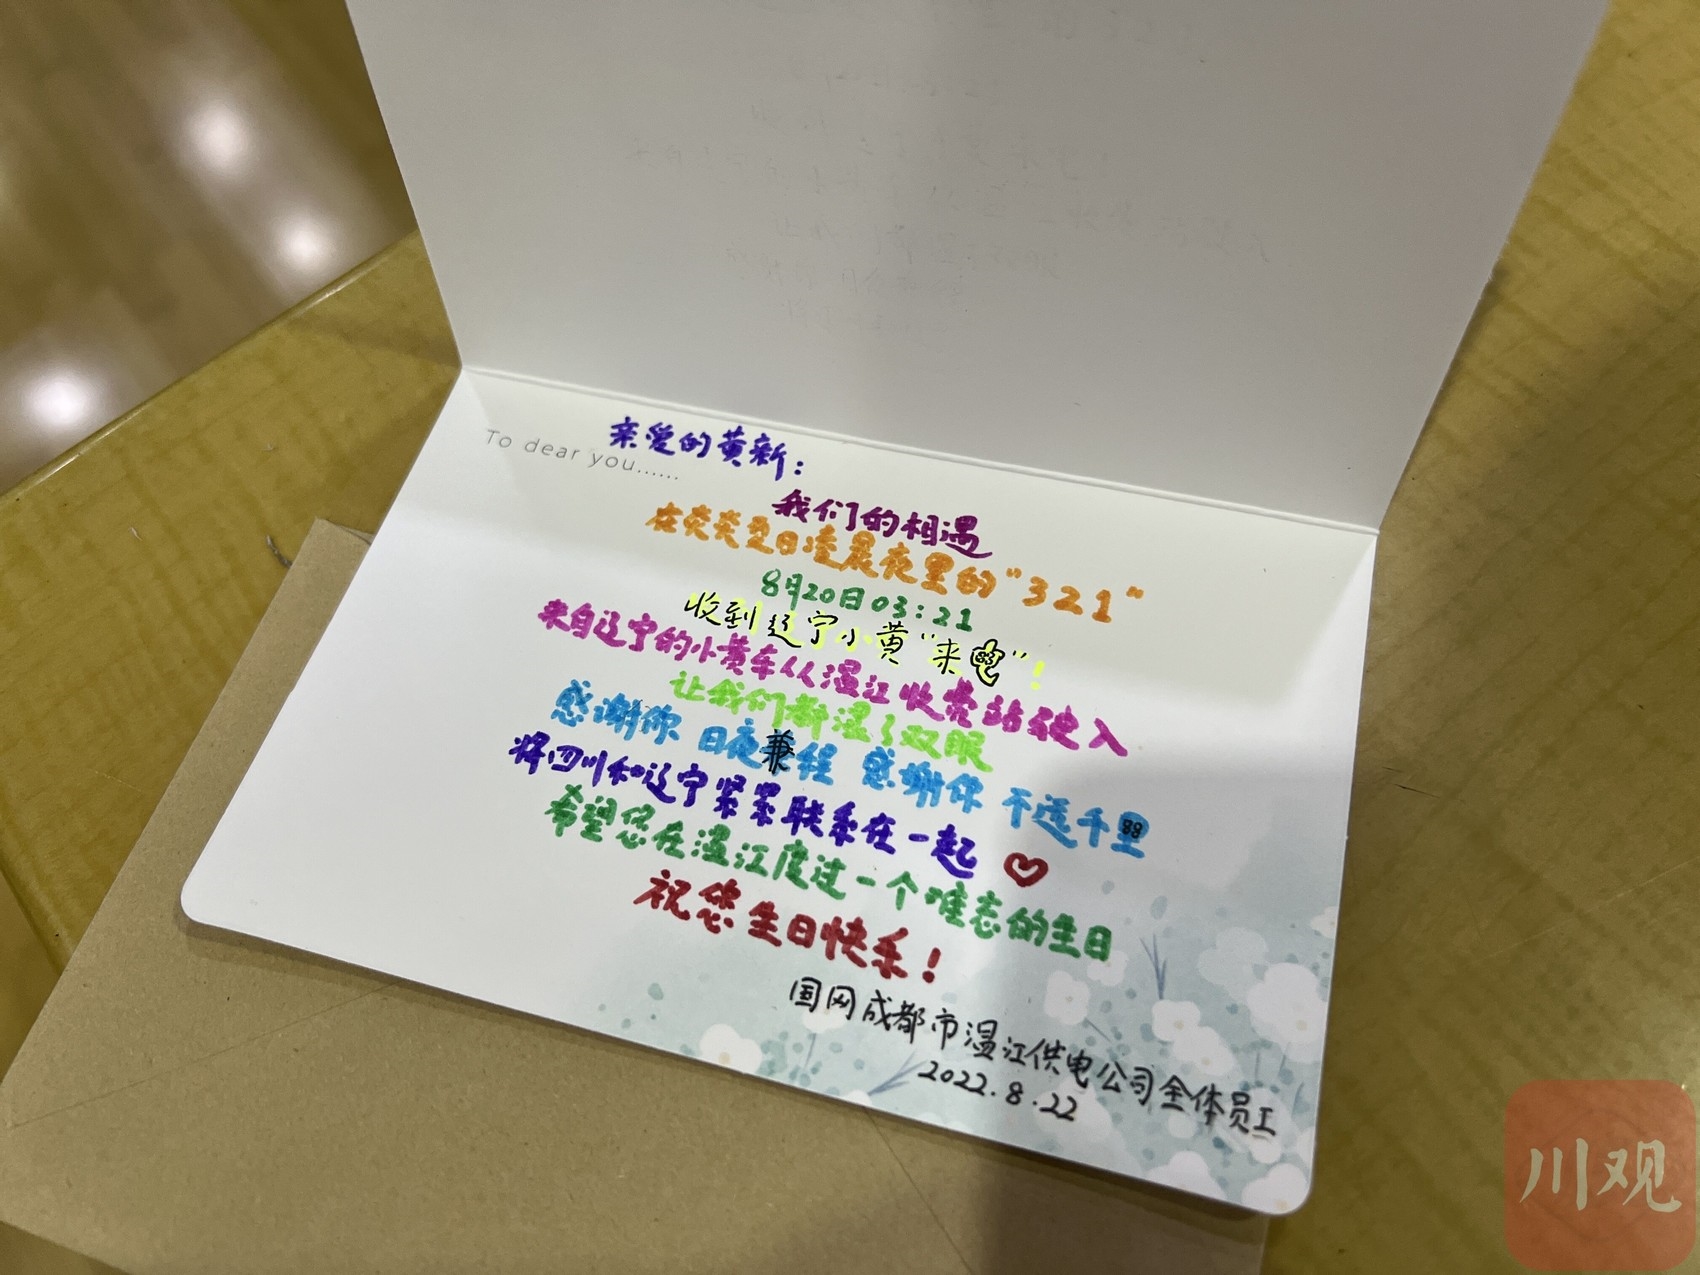 To dear you......
亲爱的黄新：
我们的相遇
在炎炎夏日凌晨夜里的“321”
8月20日03:21
收到辽宁小黄“来电”！
来自辽宁的小黄车从温江收费站驶入
让我们都湿了双眼
感谢你 日夜兼程 感谢你 不远千里
将四川和辽宁紧紧联系在一起
希望您在温江度过一个难忘的生日
祝您生日快乐！
国网成都市温江供电公司全体员工
2022.8.22
川观